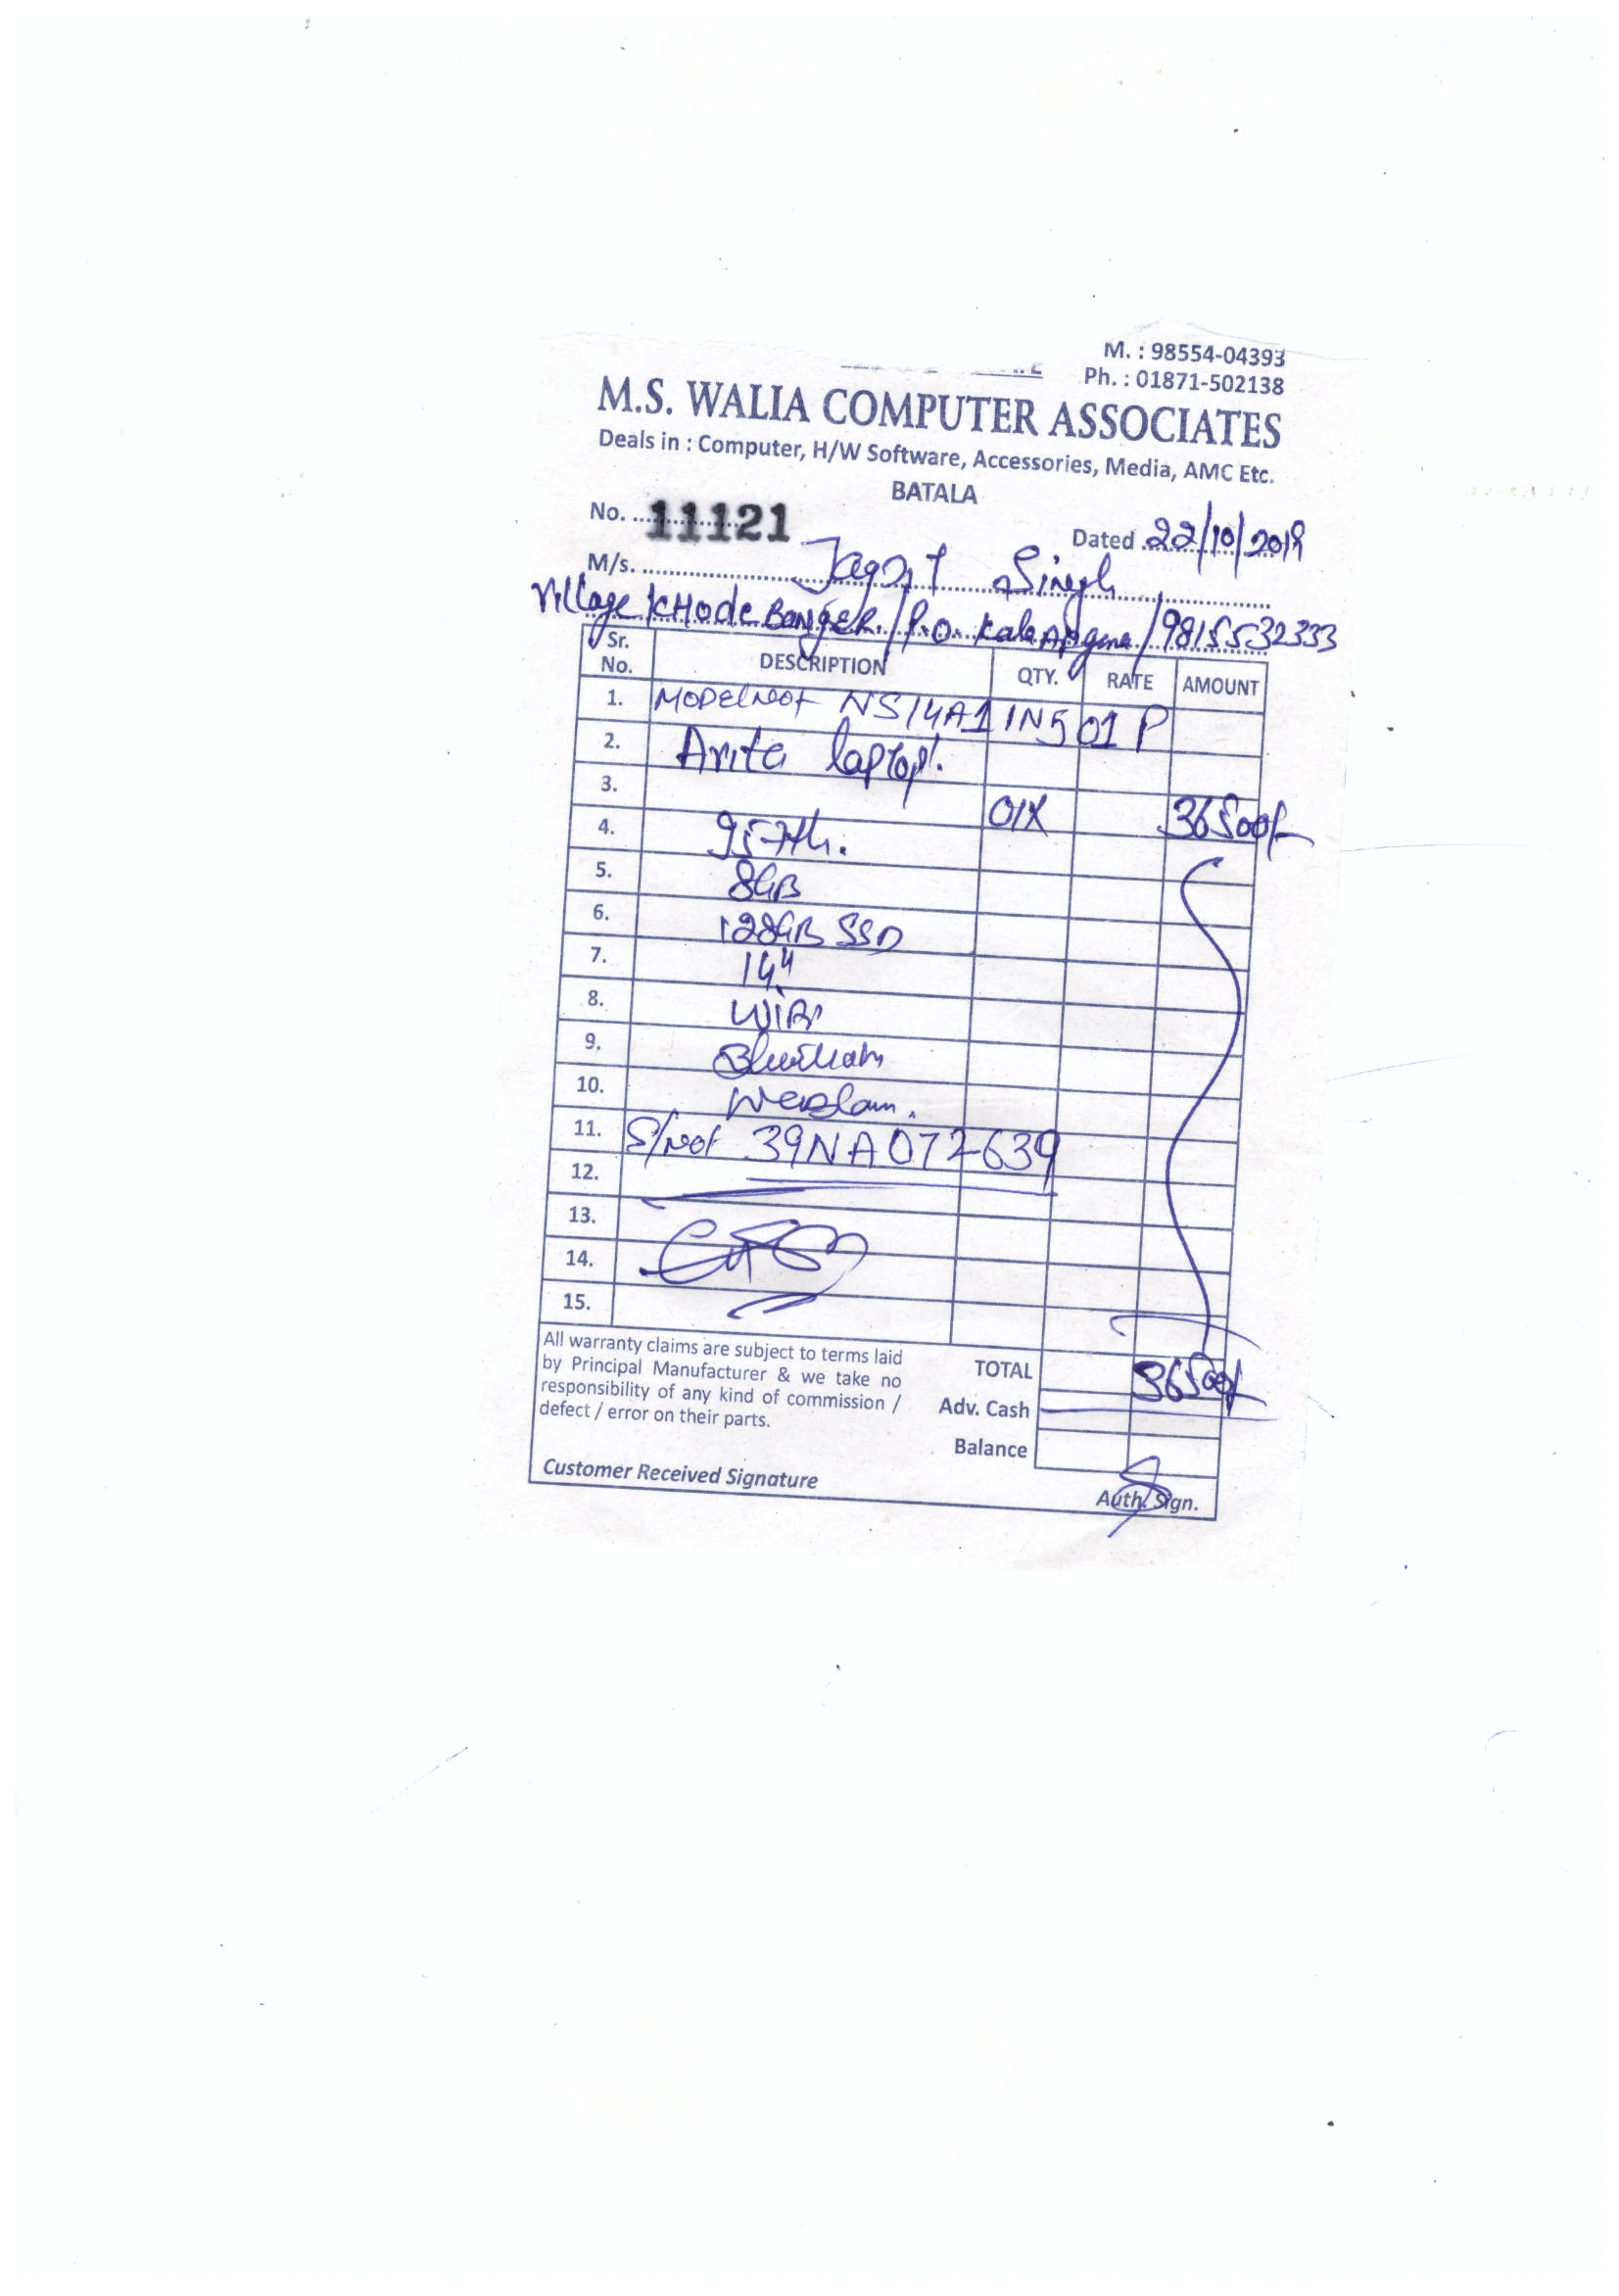 M. : 98554-04393
Ph. : 01871-502138
M.S. WALIA COMPUTER ASSOCIATES
Deals in : Computer, H/W Software, Accessories, Media, AMC Etc.
BATALA
No. 11121 Dated 22/10/2019
M/s. Jagjit Singh
Village KHode BANGER. / P.O. Kala Afgana / 9815532333
Sr. No. DESCRIPTION QTY. RATE AMOUNT
1. MODEL NS14A1IN501P
2. Avita laptop.
3. 01X 36500/-
4. 7th.
5. 8GB
6. 128GB SSD
7. 14"
8.
9.
10.
11. S/ 39NA072639
12.
13.
14.
15.
All warranty claims are subject to terms laid
by Principal Manufacturer & we take no
responsibility of any kind of commission /
defect / error on their parts.
TOTAL 36500/-
Adv. Cash
Balance
Customer Received Signature Auth. Sign.